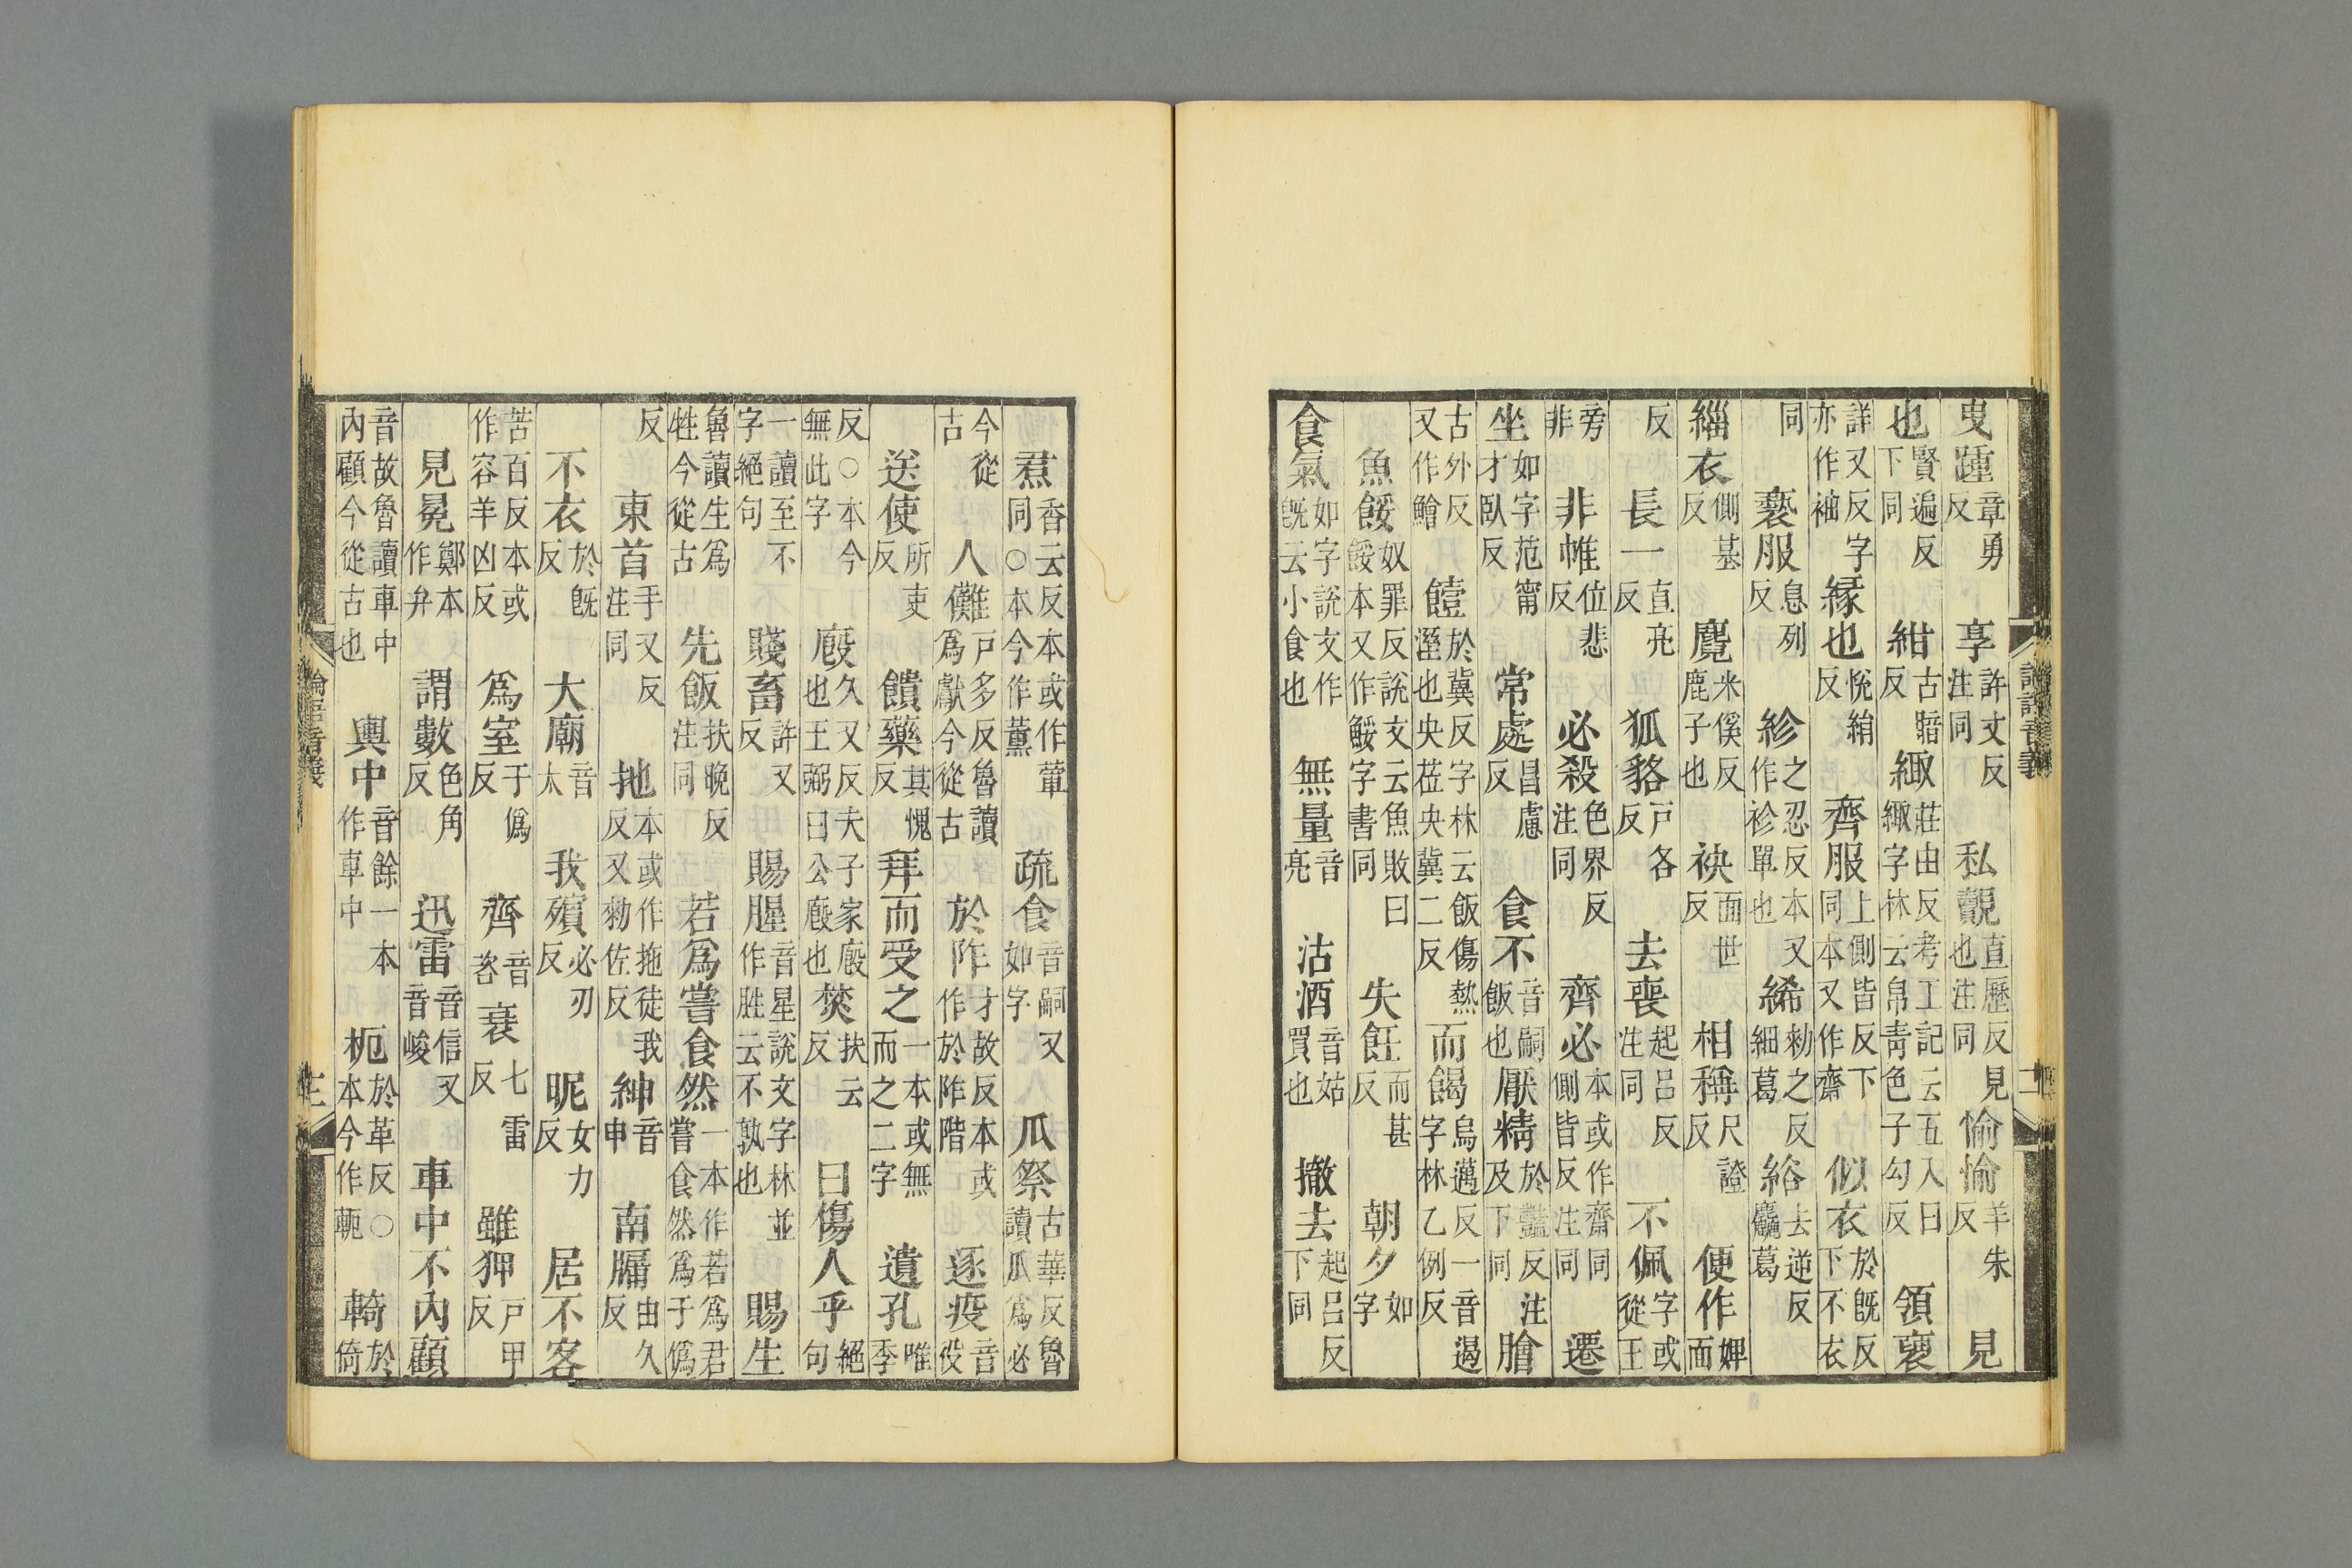 曳踵章勇反享許丈反注同私覿直歷反見也注同愉愉羊朱反見
也賢遍反下同紺古暗反緅莊由反考工記云五入曰緅字林云帛青色子勾反領褎
詳又反字亦作袖緣也悅絹反齊服上側皆反下同本又作齋似衣於旣反下不衣
同褻服息列反袗之忍反本又作袗單也絺勑之反細葛綌去逆反麤葛
緇衣側基反麑米傒反鹿子也袂面世反相稱尺證反便作婢面
反長一直亮反狐貉戶各反去喪起呂反注同不佩字或從王
旁非非帷位悲反必殺色界反注同齊必本或作齋同側皆反注同遷
坐如字范甯才臥反常處昌慮反食不音嗣飯也厭精於豔反注及下同膾
古外反又作鱠饐於冀反字林云飯傷熱溼也央莅央冀二反而餲烏邁反一音遏字林乙例反
魚餒奴罪反說文云魚敗曰餒本又作鮾字書同失飪而甚反朝夕如字
食氣如字說文作旣云小食也無量音亮沽酒音姑買也撤去起呂反下同
焄香云反本或作葷同○本今作薰疏食音嗣又如字瓜祭古華反魯讀瓜爲必
今從古人儺戶多反魯讀爲獻今從古於阼才故反本或作於阼階逐疫音役
送使所吏反饋藥其愧反拜而受之一本或無而之二字遺孔唯季
反○本今無此字廏久又反夫子家廏也王弼曰公廏也焚扶云反曰傷人乎絕句
一讀至不字絕句賤畜許又反賜腥音星說文字林並作胜云不孰也賜生
魯讀生爲牲今從古先飯扶晚反注同若爲嘗食然一本作若爲君嘗食然爲于僞
反東首手又反注同扡本或作拖徒我反又勑佐反紳音申南牖由久反
不衣於旣反大廟音太我殯必刃反昵女力反居不客
苦百反本或作容羊凶反爲室于僞反齊音咨衰七雷反雖狎戶甲反
見冕鄭本作弁謂數色角反迅雷音信又音峻車中不內顧
音故魯讀車中內顧今從古也輿中音餘一本作車中枙於革反○本今作軛輢於倚